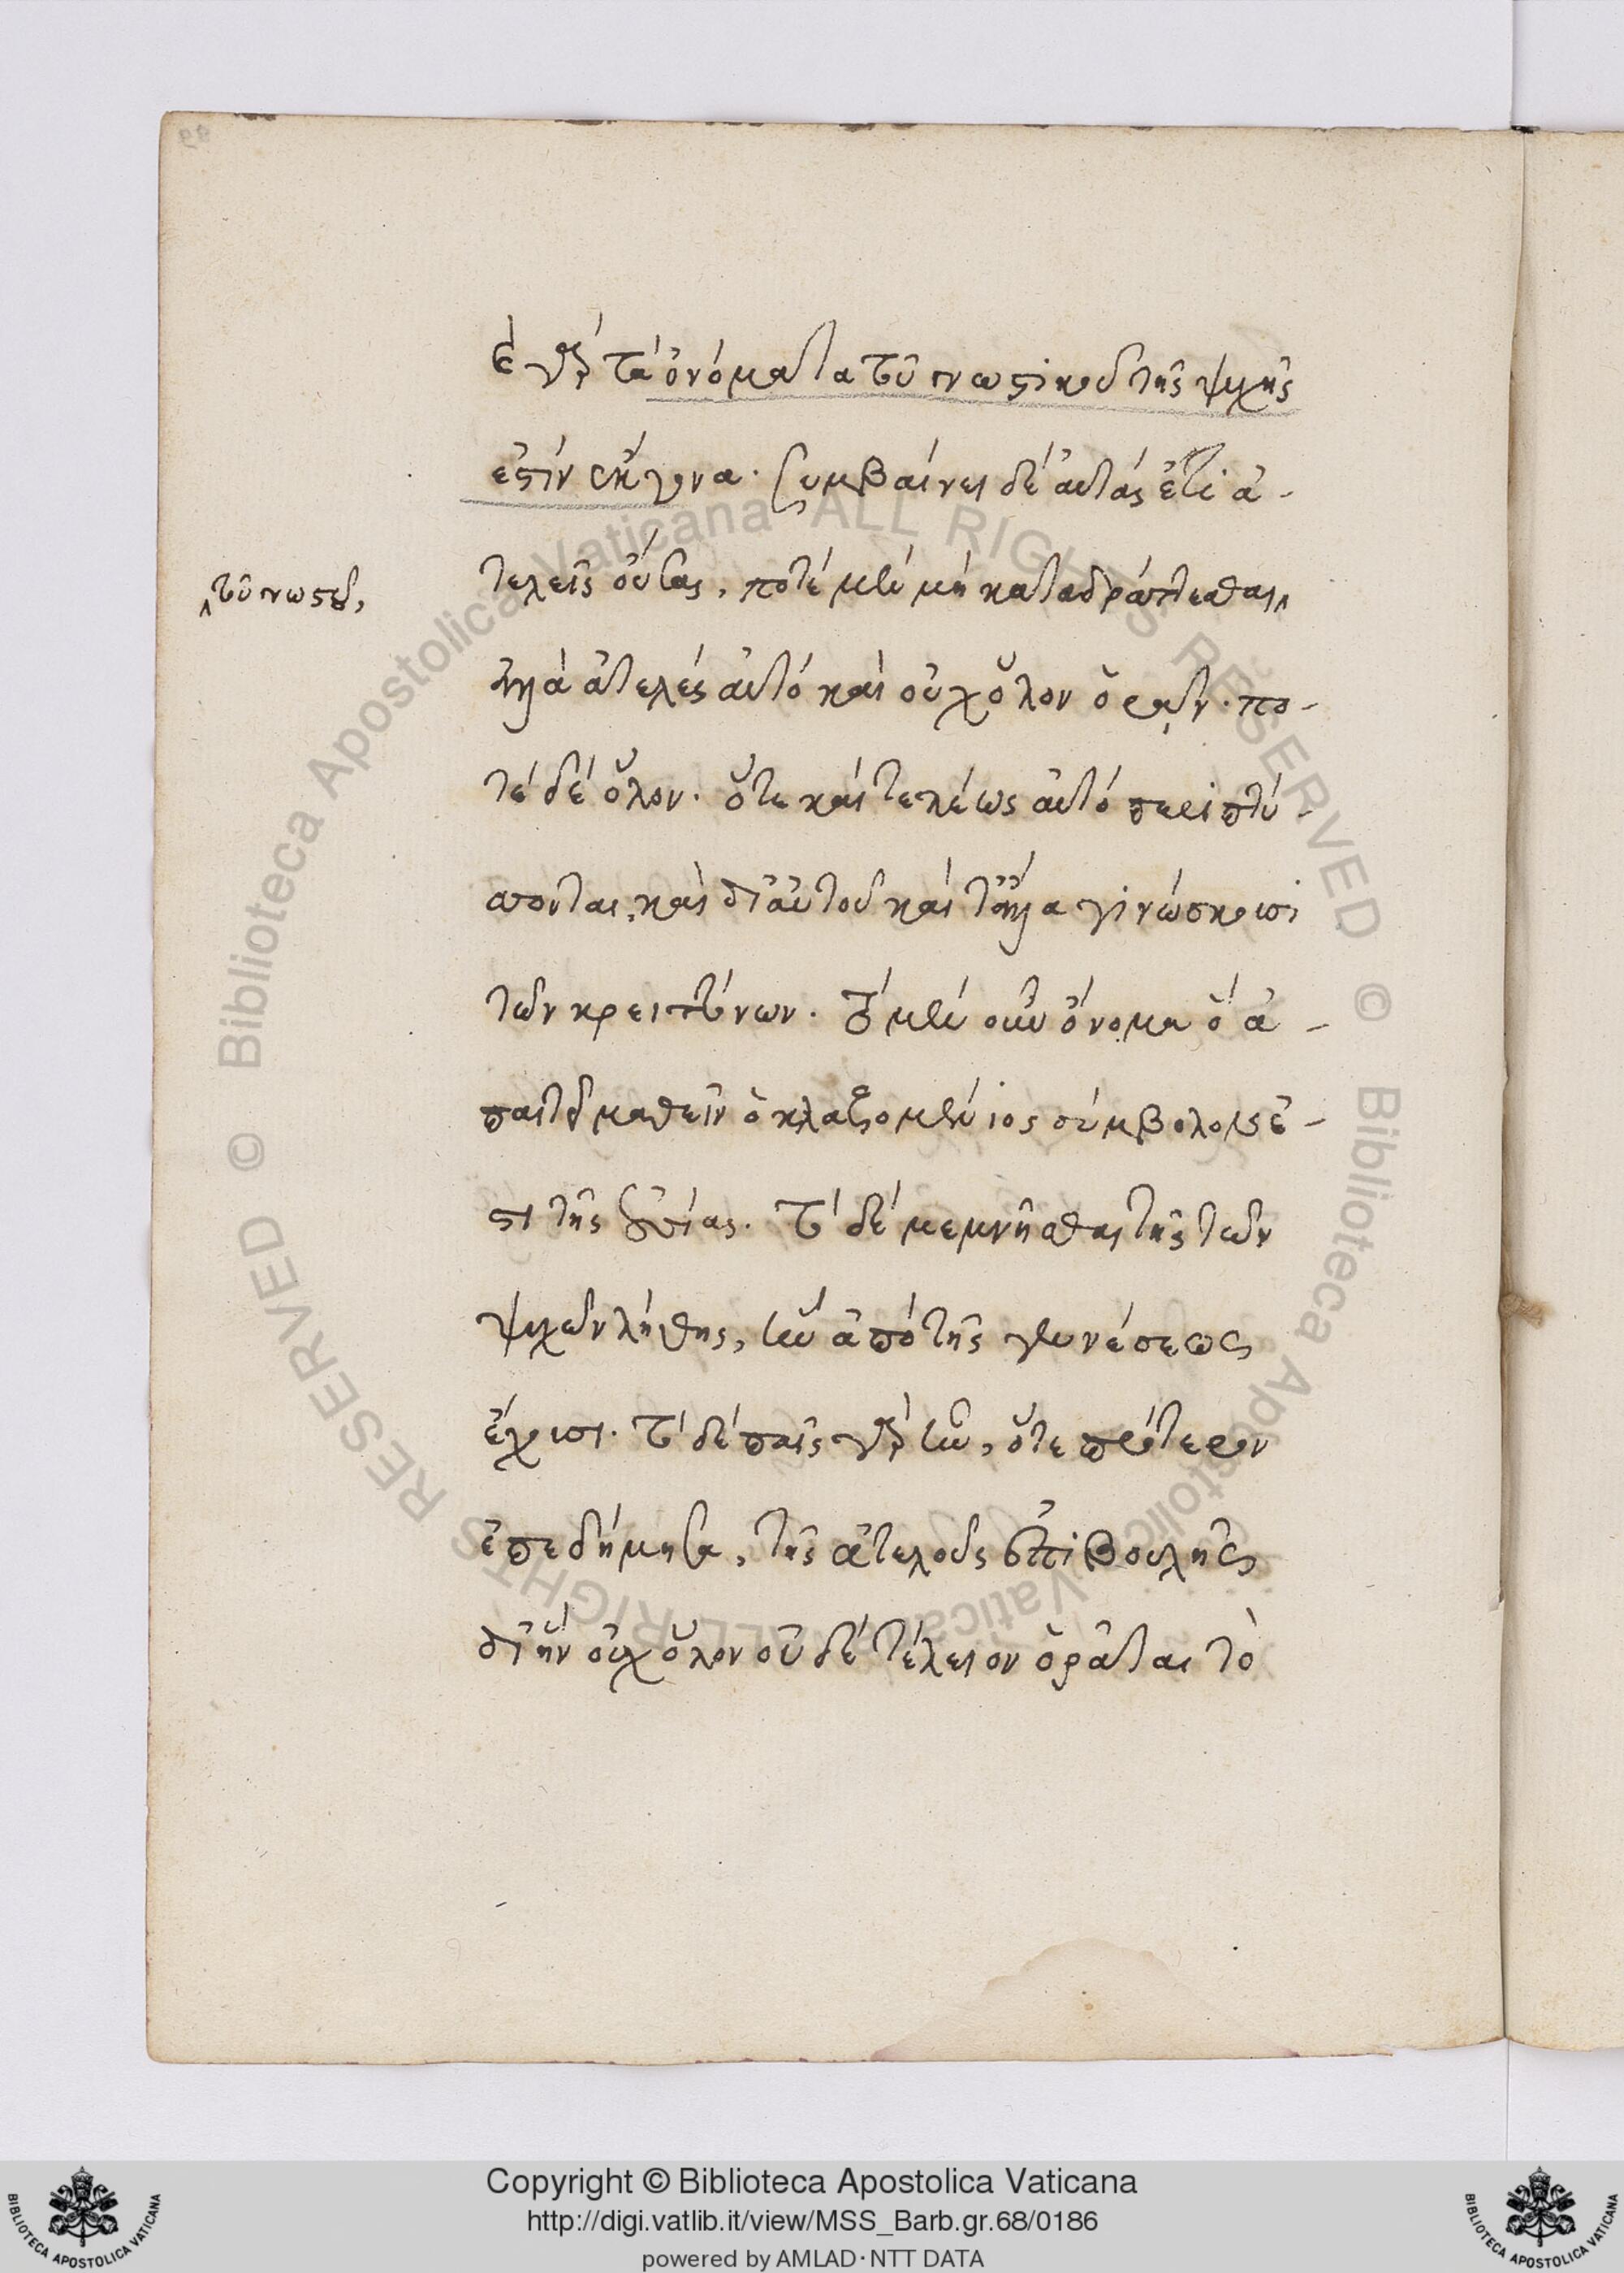 ἐ γὰρ τὰ ὀνόματα τοῦ γνωστικοῦ τῆς ψυχῆς
ἐστὶν ἔκγονα. συμβαίνει δὲ αὐτὰς ἔτι ἀ-
τελεῖς οὔσας, ποτὲ μὲν μὴ καταδράττεσθαι
τοῦ γνωστοῦ,
ἀλλὰ ἀτελὲς αὐτὸ καὶ οὐχ ὅλον ὁρᾷν. πο-
τὲ δὲ ὅλον. ὅτε καὶ τελέως αὐτὸ περιπτύ-
σσονται, καὶ δι' αὐτοῦ καὶ τἄλλα γινώσκουσι
τῶν κρειττόνων. τὸ μὲν οὖν ὄνομα ὃ ἀ-
παιτεῖ μαθεῖν ὁ κλαζομένιος σύμβολόν ἐ-
στι τῆς οὐσίας. τὸ δὲ μεμνῆσθαι τῆς τῶν
ψυχῶν λήθης, ἣν ἀπὸ τῆς γενέσεως
ἔχουσι. τὸ δὲ παῖς γὰρ ἦν, ὅτε πρότερον
ἐπεδήμησα, τῆς ἀτελοῦς ἐπιβουλῆς
δι' ἣν οὐχ ὅλον οὐδὲ τέλειον ὁρᾶται τὸ
Copyright © Biblioteca Apostolica Vaticana
http://digi.vatlib.it/view/MSS_Barb.gr.68/0186
powered by AMLAD·NTT DATA
BIBLIOTECA APOSTOLICA VATICANA
BIBLIOTECA APOSTOLICA VATICANA
© Biblioteca Apostolica Vaticana ALL RIGHTS RESERVED
© Biblioteca Apostolica Vaticana ALL RIGHTS RESERVED